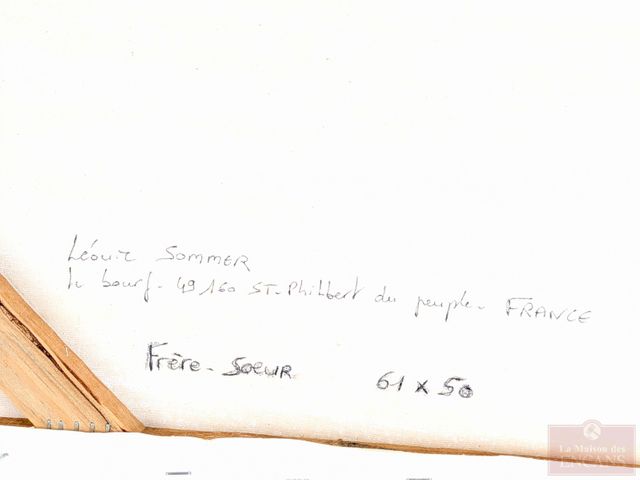 Léonie SOMMER
le bourg - 49160 ST-Philibert du peuple - FRANCE
Frère - SOEUR 61 x 50
La Maison des
ENCANS